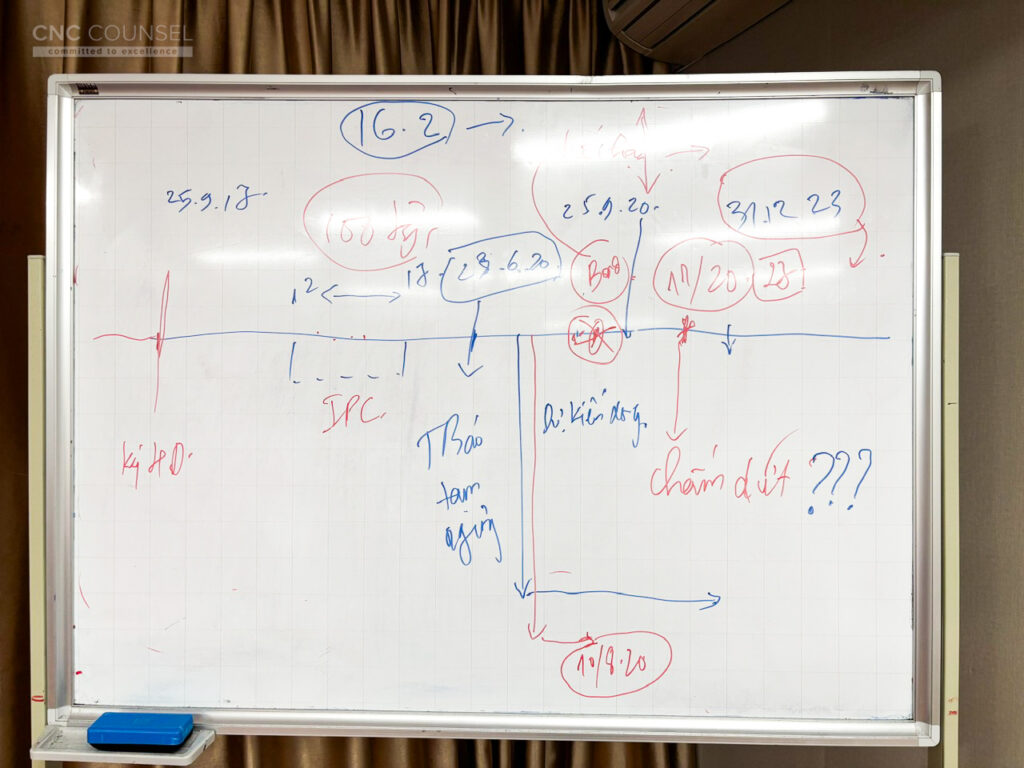 CNC COUNSEL
committed to excellence
16.2
25.9.17.
100 tỷ
25.9.20.
31.12 23
12
17.
28.6.20
Bond
11/20
27
IPC
Ký HĐ.
TBáo
tạm
ngừng
Dự kiến
Chấm dứt ???
10/8.20